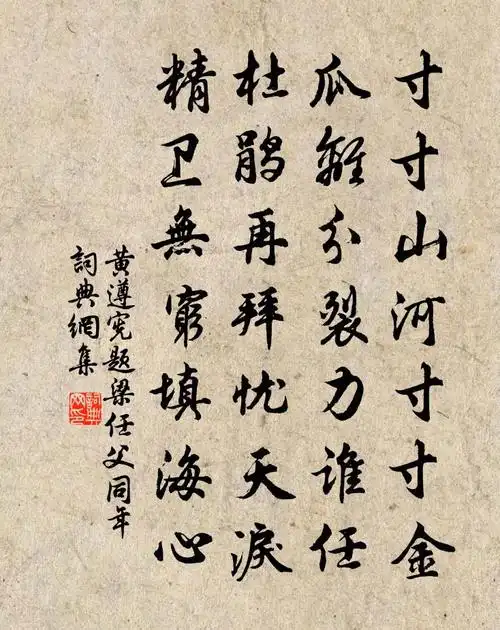 寸寸山河寸寸金
瓜離分裂力誰任
杜鵑再拜忧天淚
精卫無窮填海心
黄遵宪题梁任父同年
詞典網集